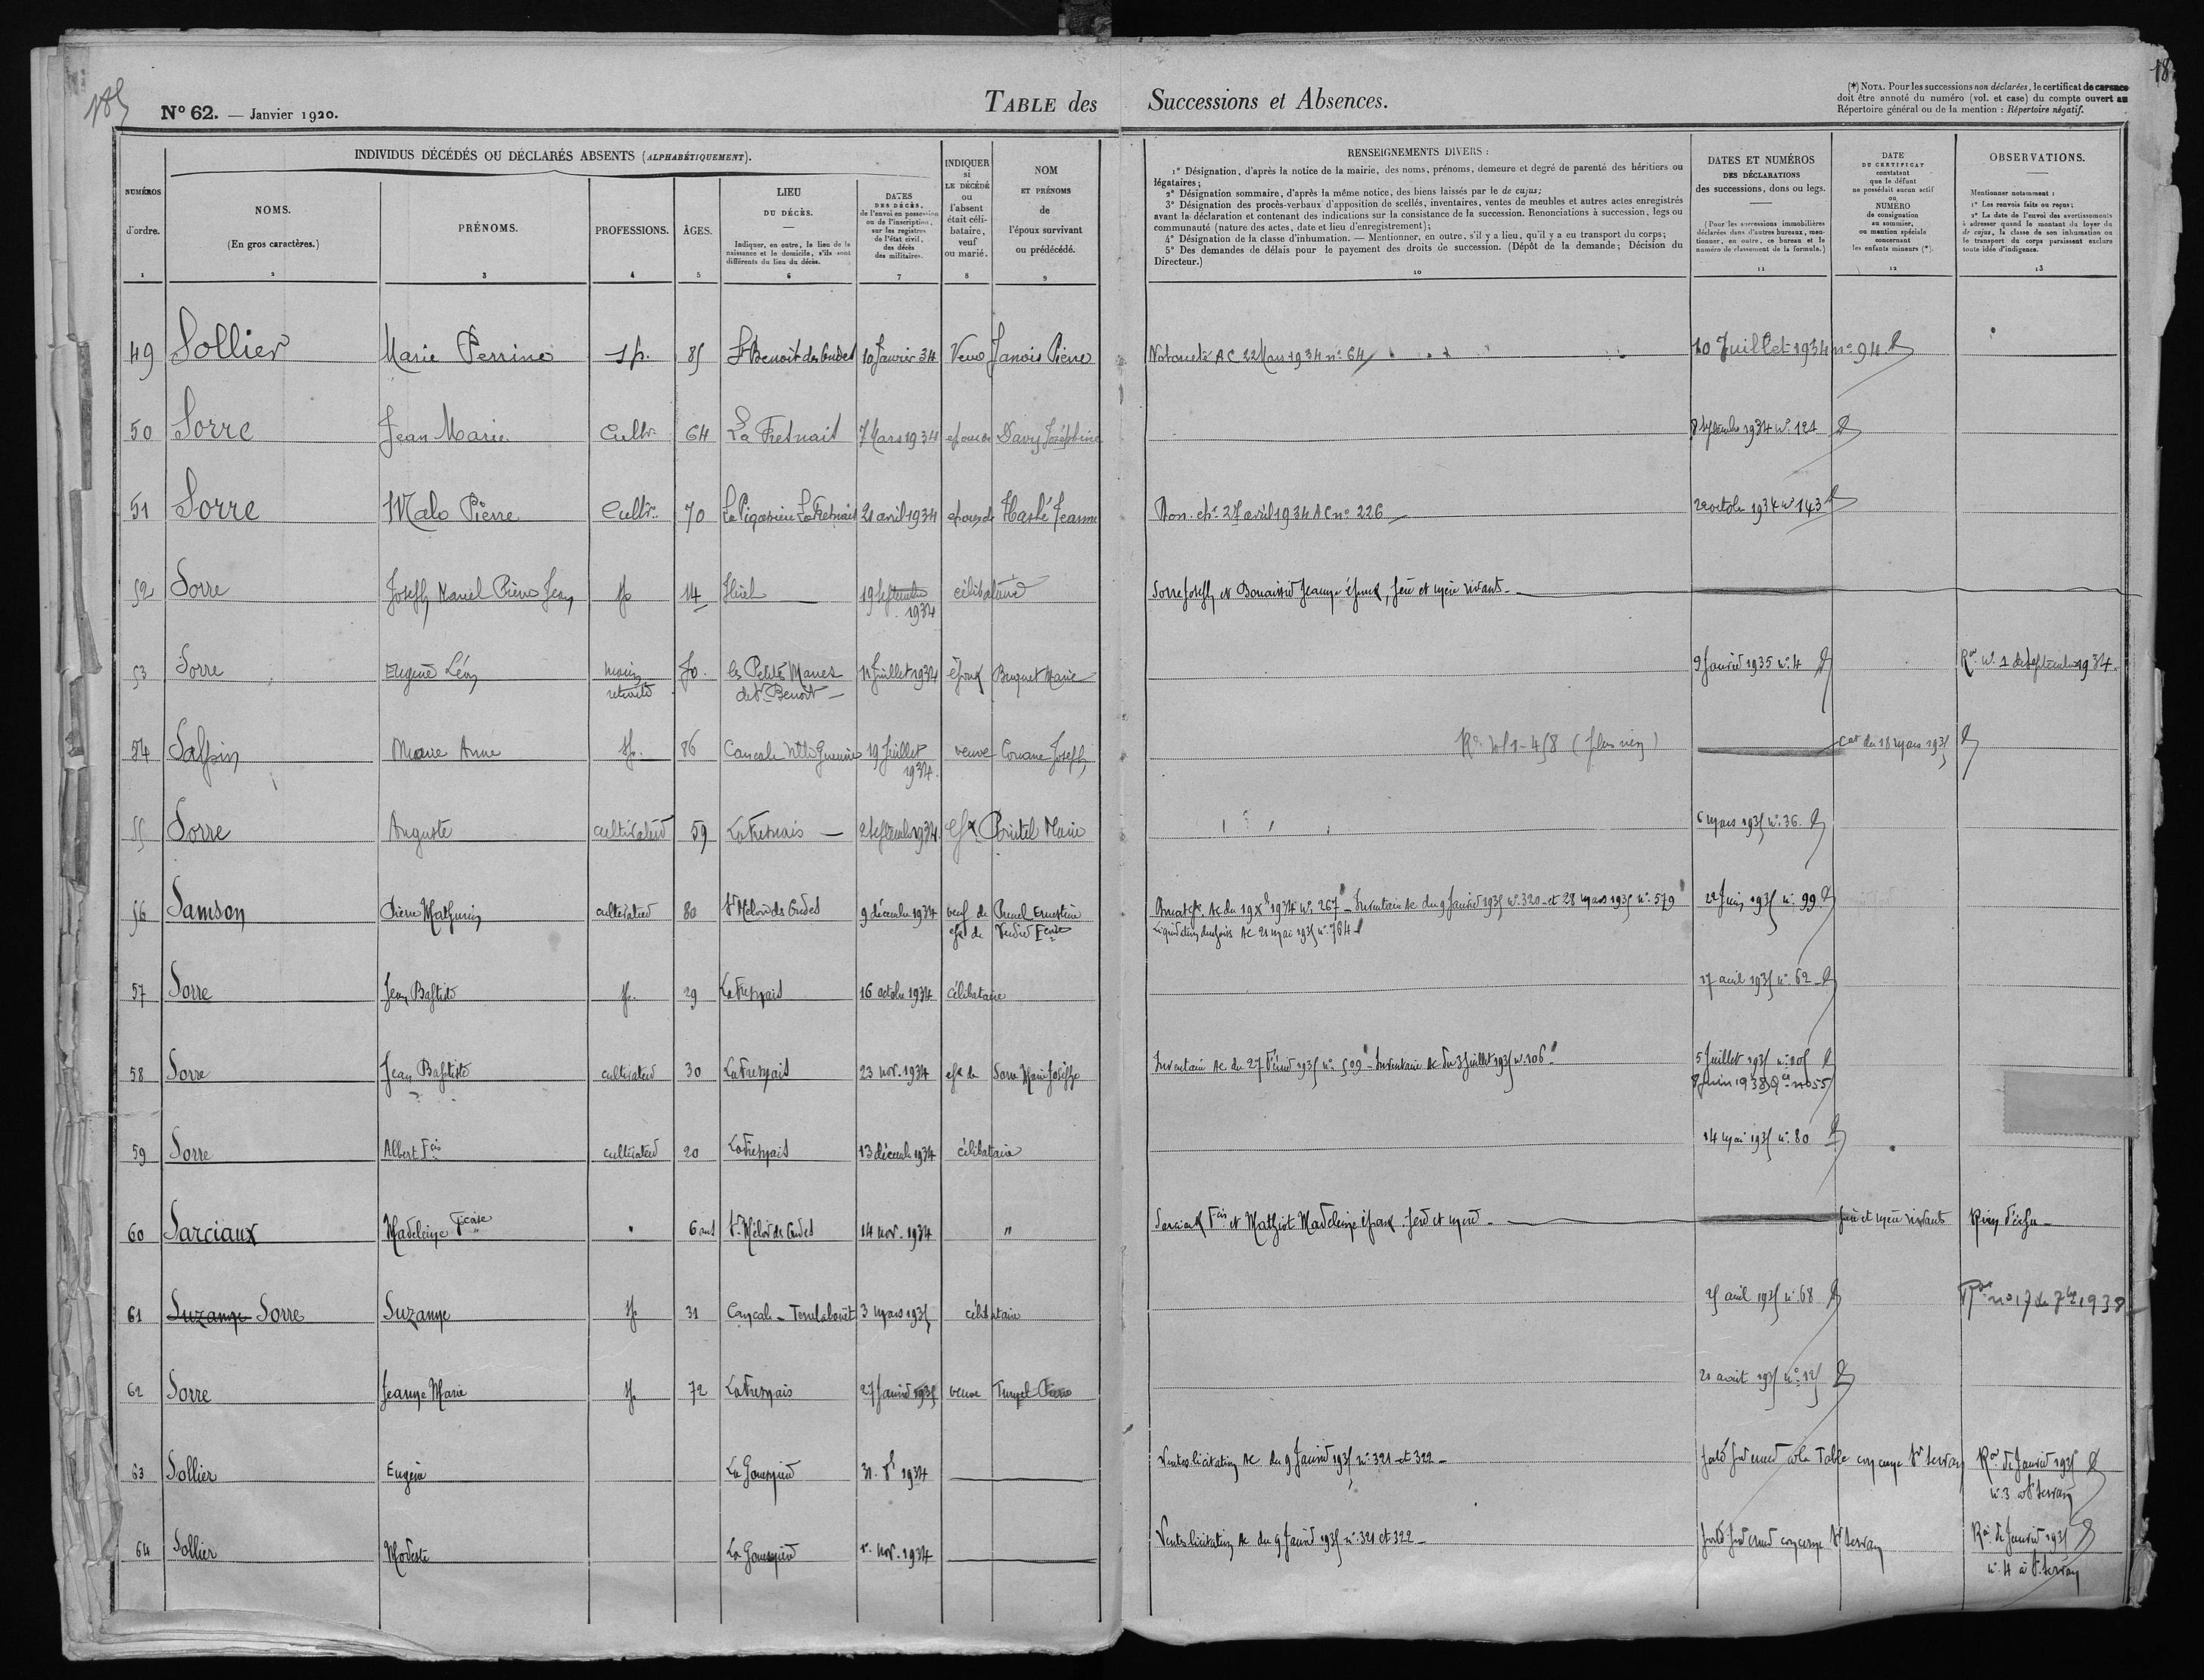 185
N° 62. — Janvier 1920.
TABLE des Successions et Absences.
(*) NOTA. Pour les successions non déclarées, le certificat de carence
doit être annoté du numéro (vol. et case) du compte ouvert au
Répertoire général ou de la mention : Répertoire négatif.
18
NUMÉROS d'ordre. 1
INDIVIDUS DÉCÉDÉS OU DÉCLARÉS ABSENTS (ALPHABÉTIQUEMENT).
NOMS. (En gros caractères.) 2
PRÉNOMS. 3
PROFESSIONS. 4
ÂGES. 5
LIEU DU DÉCÈS. — Indiquer, en outre, le lieu de la naissance et le domicile, s'ils sont différents du lieu du décès. 6
DATES DES DÉCÈS, de l'envoi en possession ou de l'inscription, sur les registres de l'état civil, des décès des militaires. 7
INDIQUER si LE DÉCÉDÉ ou l'absent était célibataire, veuf ou marié. 8
NOM ET PRÉNOMS de l'époux survivant ou prédécédé. 9
RENSEIGNEMENTS DIVERS :
1° Désignation, d'après la notice de la mairie, des noms, prénoms, demeure et degré de parenté des héritiers ou
légataires;
2° Désignation sommaire, d'après la même notice, des biens laissés par le de cujus;
3° Désignation des procès-verbaux d'apposition de scellés, inventaires, ventes de meubles et autres actes enregistrés
avant la déclaration et contenant des indications sur la consistance de la succession. Renonciations à succession, legs ou
communauté (nature des actes, date et lieu d'enregistrement);
4° Désignation de la classe d'inhumation. — Mentionner, en outre, s'il y a lieu, qu'il y a eu transport du corps;
5° Des demandes de délais pour le payement des droits de succession. (Dépôt de la demande; Décision du
Directeur.)
10
DATES ET NUMÉROS DES DÉCLARATIONS des successions, dons ou legs. — (Pour les successions immobilières déclarées dans d'autres bureaux, mentionner, en outre, ce bureau et le numéro de classement de la formule.) 11
DATE DU CERTIFICAT constatant que le défunt ne possédait aucun actif ou NUMÉRO de consignation au sommier, ou mention spéciale concernant les enfants mineurs (*). 12
OBSERVATIONS. — Mentionner notamment : 1° Les renvois faits ou reçus; 2° La date de l'envoi des avertissements à adresser quand le montant du loyer du de cujus, la classe de son inhumation ou le transport du corps paraissent exclure toute idée d'indigence. 13
49 Sollier Marie Perrine sp. 85 St Benoit des Ondes 10 Janvier 34 Veuve Janois Pierre Notoriété AC 22 Mars 1934 n° 64 10 Juillet 1934 n° 94
50 Sorre Jean Marie Cultr 64 La Fresnais 7 Mars 1934 époux de Davy Joséphine 8 septembre 1934 n° 121
51 Sorre Malo Pierre Cultr. 70 La Fresnais 21 avril 1934 époux de Hashé Jeanne Don. ep. 27 avril 1934 AC n° 226 22 octobre 1934 n° 143
52 Sorre Joseph Marcel Pierre Jean sp 14 Hirel 19 Septembre 1934 célibataire Sorre Joseph et Jeanne époux, père et mère vivants
53 Sorre Eugène Léon marin retraité 70. les Petits Marais de St Benoit 11 Juillet 1934 époux Marie 9 Janvier 1935 n° 4 n° 1 de Septembre 1934
54 Marie Anne sp. 86 Cancale 19 Juillet 1934. veuve Joseph (plus rien) cat du 18 mars 1935
55 Sorre Auguste cultivateur 59 La Fresnais 2 septembre 1934. épx Pointel Marie 6 mars 1935 n° 36.
56 Samson Pierre Mathurin cultivateur 80 St Méloir des Ondes 9 décembre 1934 veuf de Ernestine
AC du 19 Xbre 1934 n° 267 - Inventaire AC du 9 Janvier 1935 n° 320 - et 28 mars 1935 n° 579 22 Juin 1935 n° 99
Liquidation AC 21 mai 1935 n° 764
57 Sorre Jean Baptiste sp. 29 La Fresnais 16 octobre 1934 célibataire 17 avril 1935 n° 62
58 Sorre Jean Baptiste cultivateur 30 La Fresnais 23 nov. 1934 épx de Sorre Marie Josèphe Inventaire AC du 27 Février 1935 n° 509 - Inventaire AC du 3 Juillet 1935 n° 106 5 Juillet 1935 n° 105
8 Juin 1938 n° 55
59 Sorre Albert Fcis cultivateur 20 La Fresnais 13 décembre 1934 célibataire 14 mai 1935 n° 80
60 Sarciaux Madeleine Fçoise 6 ans St Méloir des Ondes 14 nov. 1934 " Sarciaux Fcis et Mathiot Madeleine époux. père et mère - père et mère vivants Rien d'échu
61 Suzanne Sorre Suzanne sp 31 Cancale - Terrelabouët 3 mars 1935 célibataire 25 avril 1935 n° 68 n° 17 de 7bre 1938
62 Sorre Jeanne Marie sp 72 La Fresnais 27 Janvier 1935 veuve 21 août 1935 n° 125
63 Sollier Eugène La Gouesnière 31. 8bre 1934 Ventes licitation AC du 9 Janvier 1935 n° 321 et 322 - Table concerne St Servan de Janvier 1935
n° 3 St Servan
64 Sollier Modeste La Gouesnière 1er nov. 1934 Ventes licitation AC du 9 Janvier 1935 n° 321 et 322 - concerne St Servan de Janvier 1935
n° 4 à St Servan